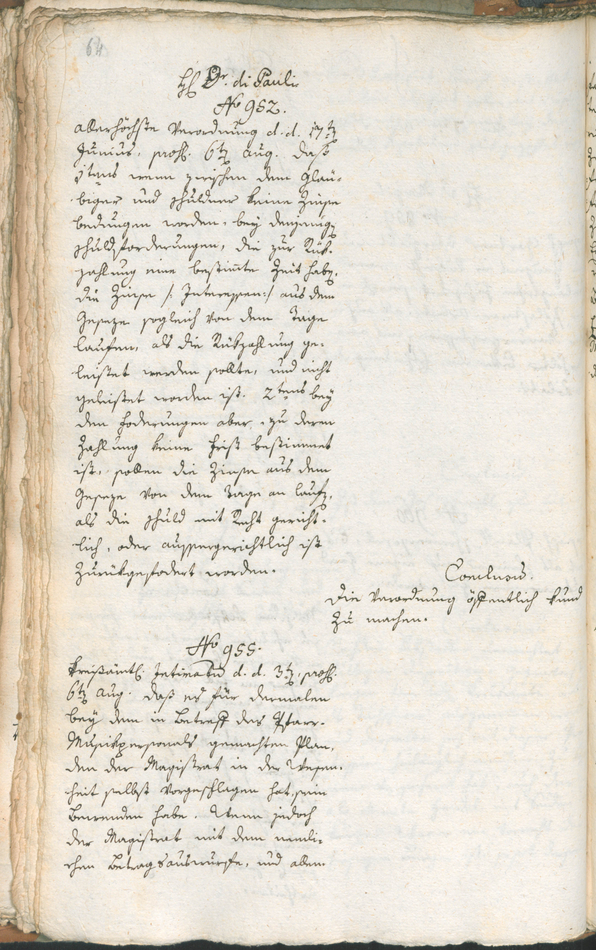 64
H. Dr. di Pauli
No 952.
allerhöchste Verordnung d. d. 17tn
Junius, præs. 6tn Aug. daß
1tens wenn zwischen dem Gläu-
biger und Schuldner keine Zinse
bedungen worden, bey denjenign
Schuldforderungen, die zur Rük-
zahlung eine bestimte Zeit habn,
die Zinse /: Interessen :/ aus dem
Geseze sogleich von dem Tage
laufen, als die Rükzahlung ge-
leistet werden sollte, und nicht
geleistet worden ist. 2tens bey
den Foderungen aber, zu deren
Zahlung keine Frist bestimmet
ist, sollen die Zinse aus dem
Geseze von dem Tage an laufn,
als die Schuld mit Recht gericht-
lich, oder aussergerichtlich ist
zurükgefodert worden.
Conclusū.
Die Verordnung öffentlich kund
zu machen.
No 955.
Kreisämtl. Intimatū d. d. 3tn, præs.
6tn Aug. daß es für dermalen
bey dem in Betreff des Pfarr-
Musikpersonals gemachten Plan,
den der Magistrat in der Wesen-
heit selbst vorgeschlagen hat, sein
Bewenden habe. Wenn jedoch
der Magistrat mit dem nemli-
chen Betrag auswurffe, und eben